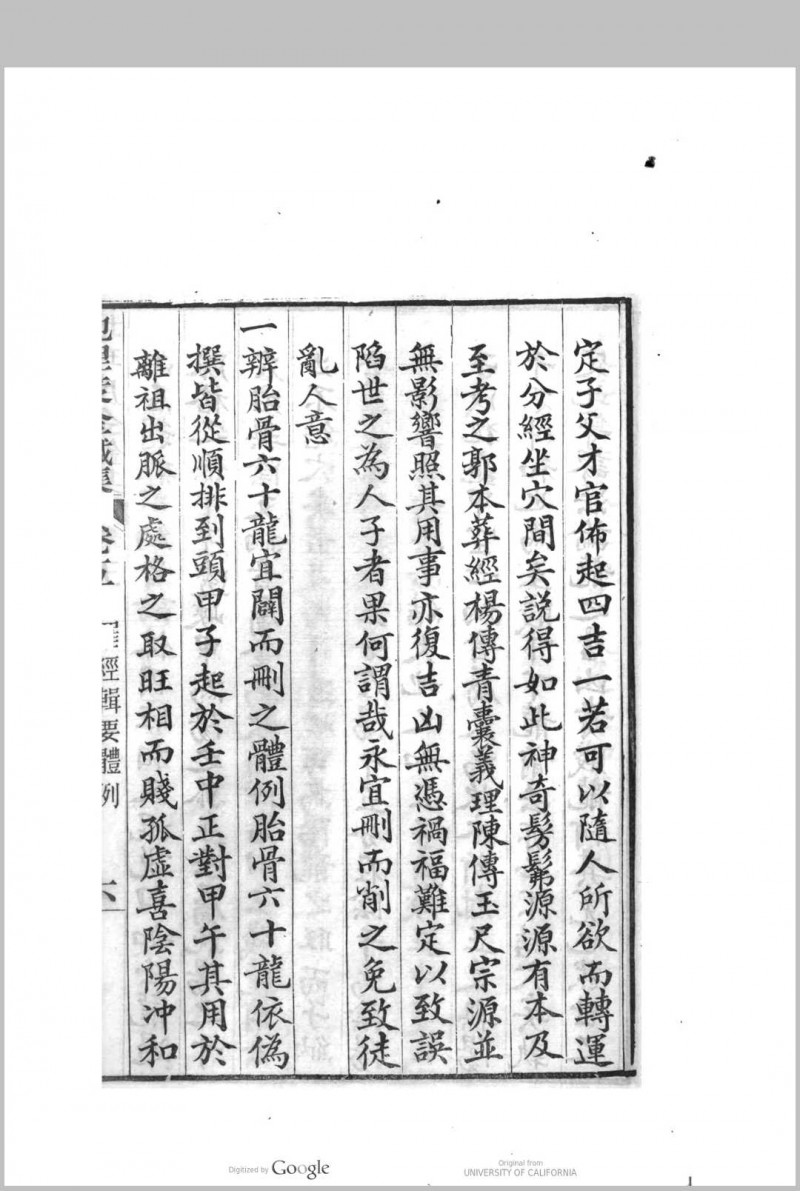 定子父才官佈起四吉一若可以隨人所欲而轉運
於分經坐穴間矣説得如此神奇髣髴源源有本及
至考之郭本葬經楊傳青囊義理陳傳玉尺宗源並
無影響照其用事亦復吉凶無憑禍福難定以致誤
陷世之為人子者果何謂哉永宜刪而削之免致徒
亂人意
一辨胎骨六十龍宜闢而刪之體例胎骨六十龍依偽
撰皆從順排到頭甲子起於壬中正對甲午其用於
離祖出脈之處格之取旺相而賤孤虛喜陰陽冲和
經輯要體例
六
Digitized by Google
Original from
UNIVERSITY OF CALIFORNIA
1